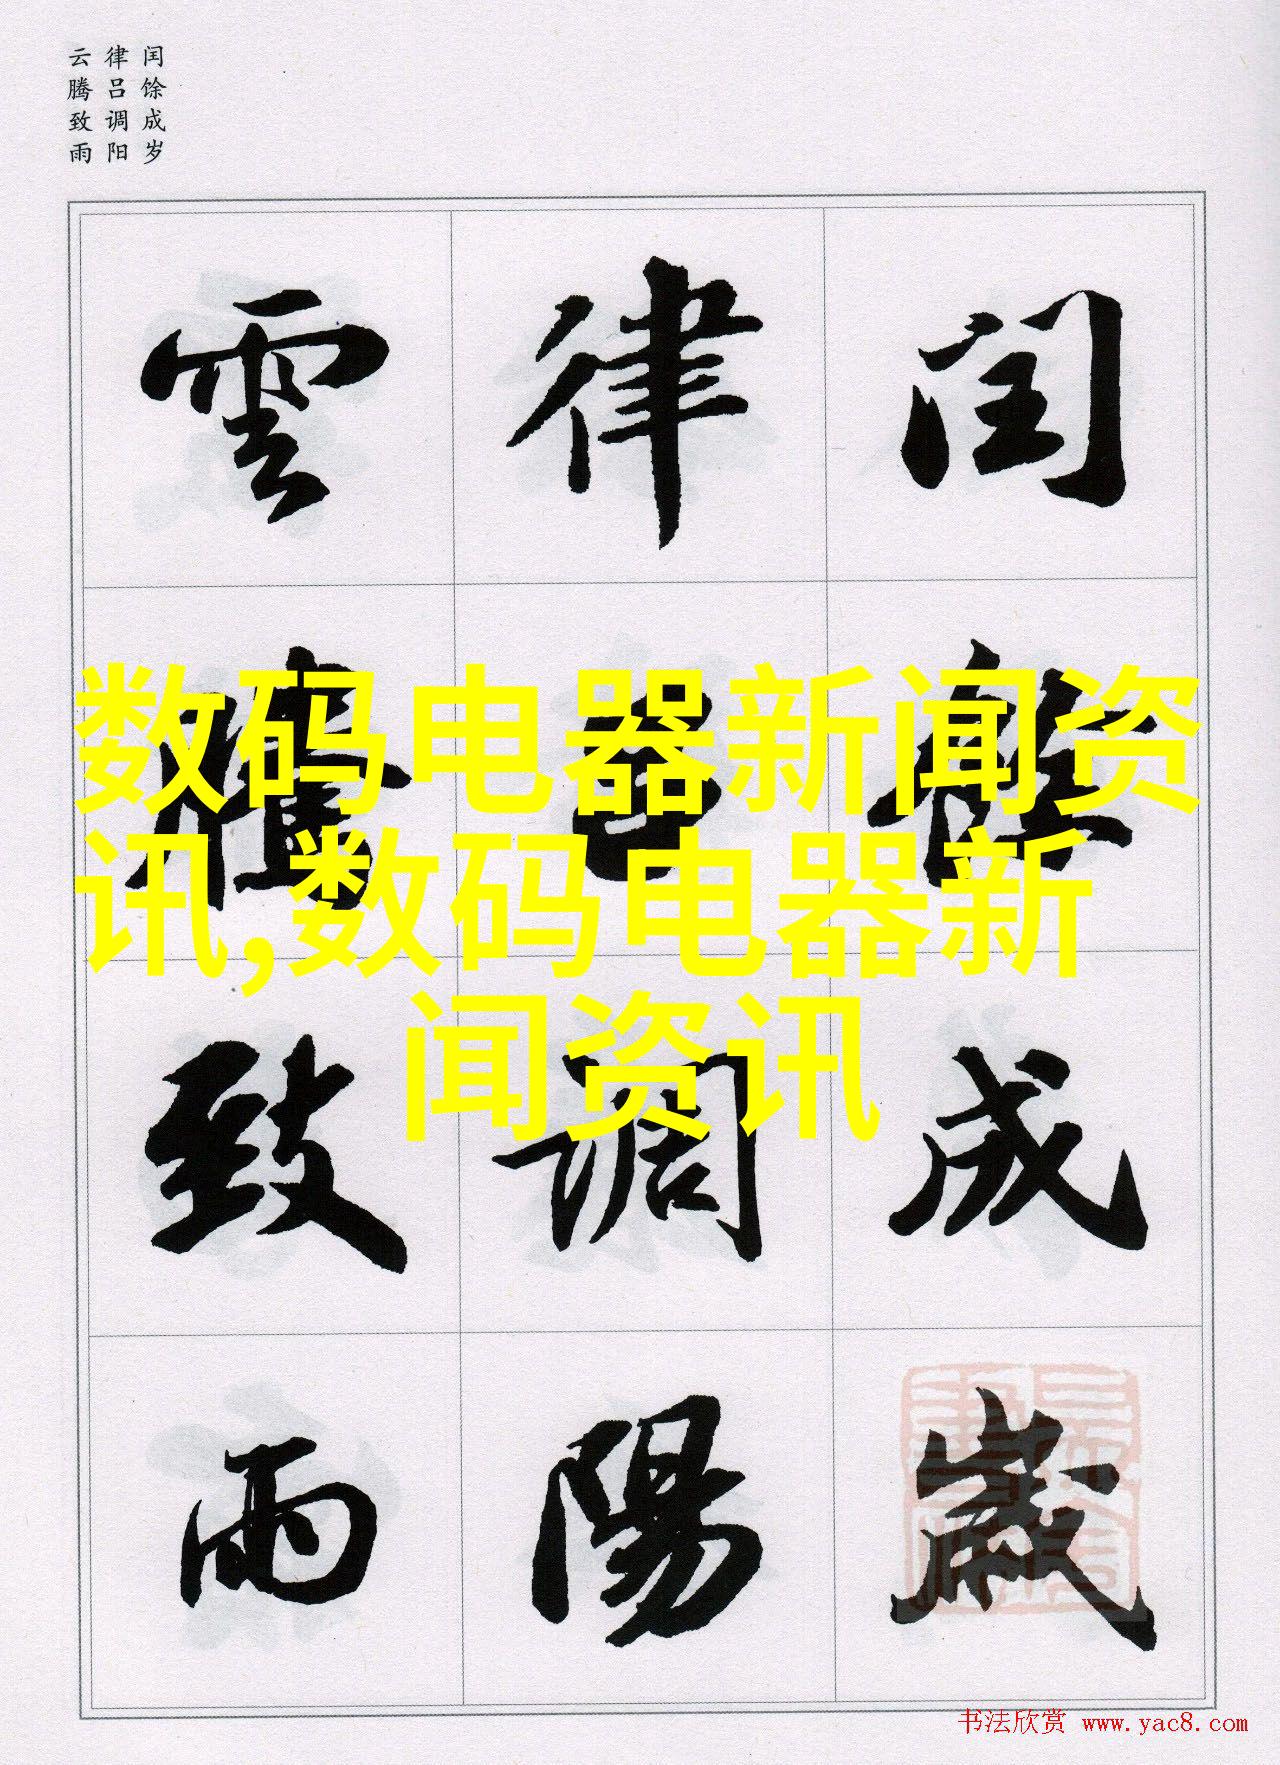 闰馀成岁
律吕调阳
云腾致雨
閏餘成歲
律吕調陽
雲騰致雨
数码电器新闻资
讯,数码电器新
闻资讯
书法欣赏 www.yac8.com